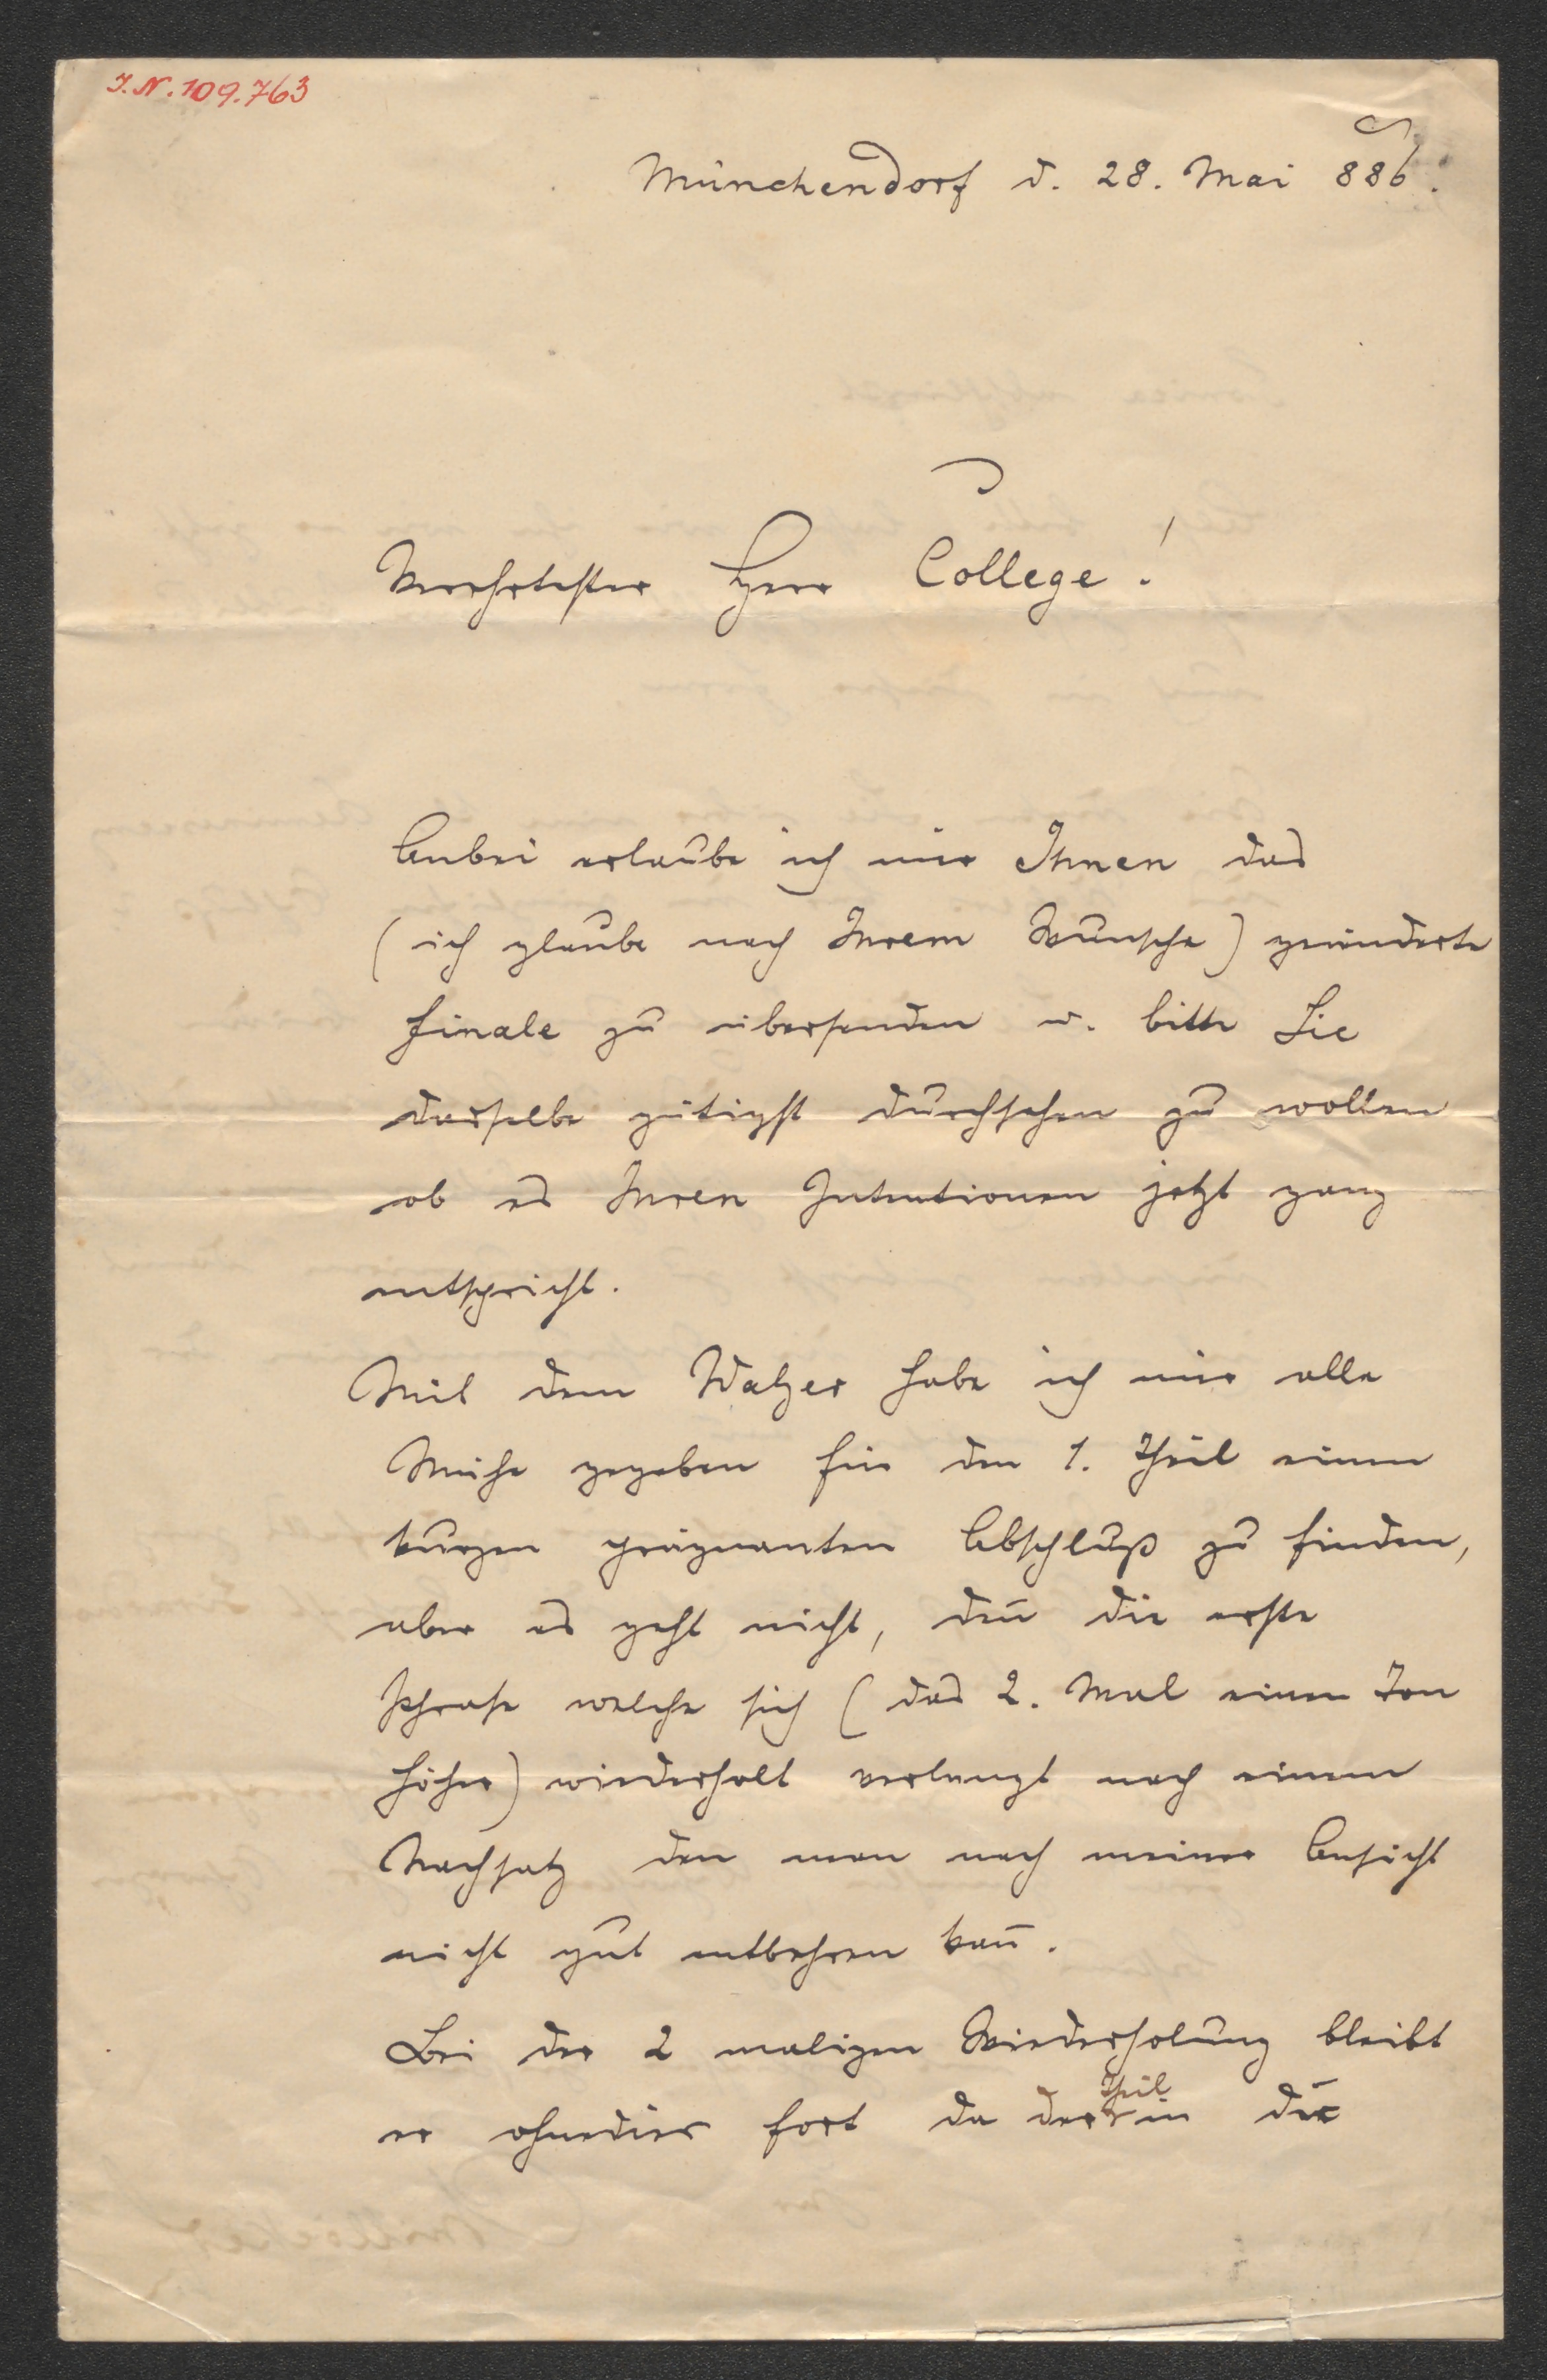 I.N. 109.763
Münchendorf d. 28. Mai 886.
Verehrtester Herr College!
Anbei erlaube ich mir Ihnen das
(ich glaube nach Ihrem Wunsche) geänderte
Finale zu übersenden u. bitte Sie
dasselbe gütigst durchsehen zu wollen
ob es Ihren Intentionen jetzt ganz
entspricht.
Mit dem Walzer habe ich mir alle
Mühe gegeben für den 1. Theil einen
kurzen prägnanten Abschluß zu finden,
aber es geht nicht, deñ die erste
Phrase welche sich (das 2. Mal einen Ton
höher) wiederholt verlangt nach einem
Nachsatz den man nach meiner Ansicht
nicht gut entbehren kañ.
Bei der 2 maligen Wiederholung bleibt
er ohnedies fort da der Theil in die